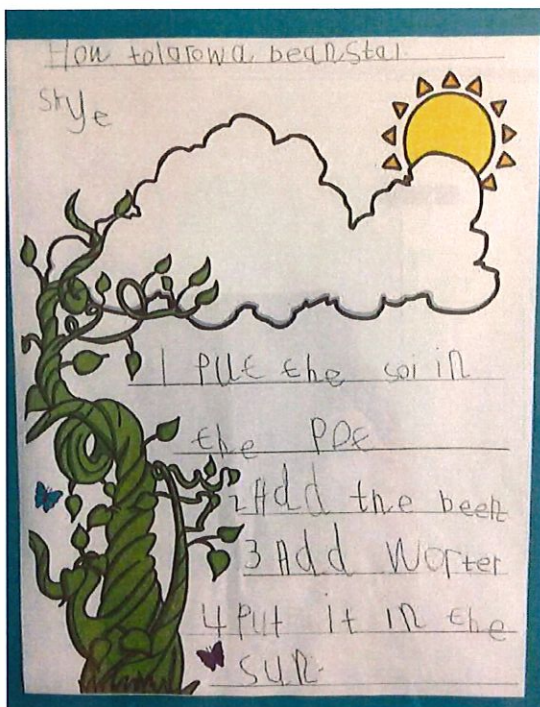 How tolgrowa beanstal
Skye
1 Put the soi in
the Pot
2 Add the been
3 Add Worter
4 Put it in the
sun.